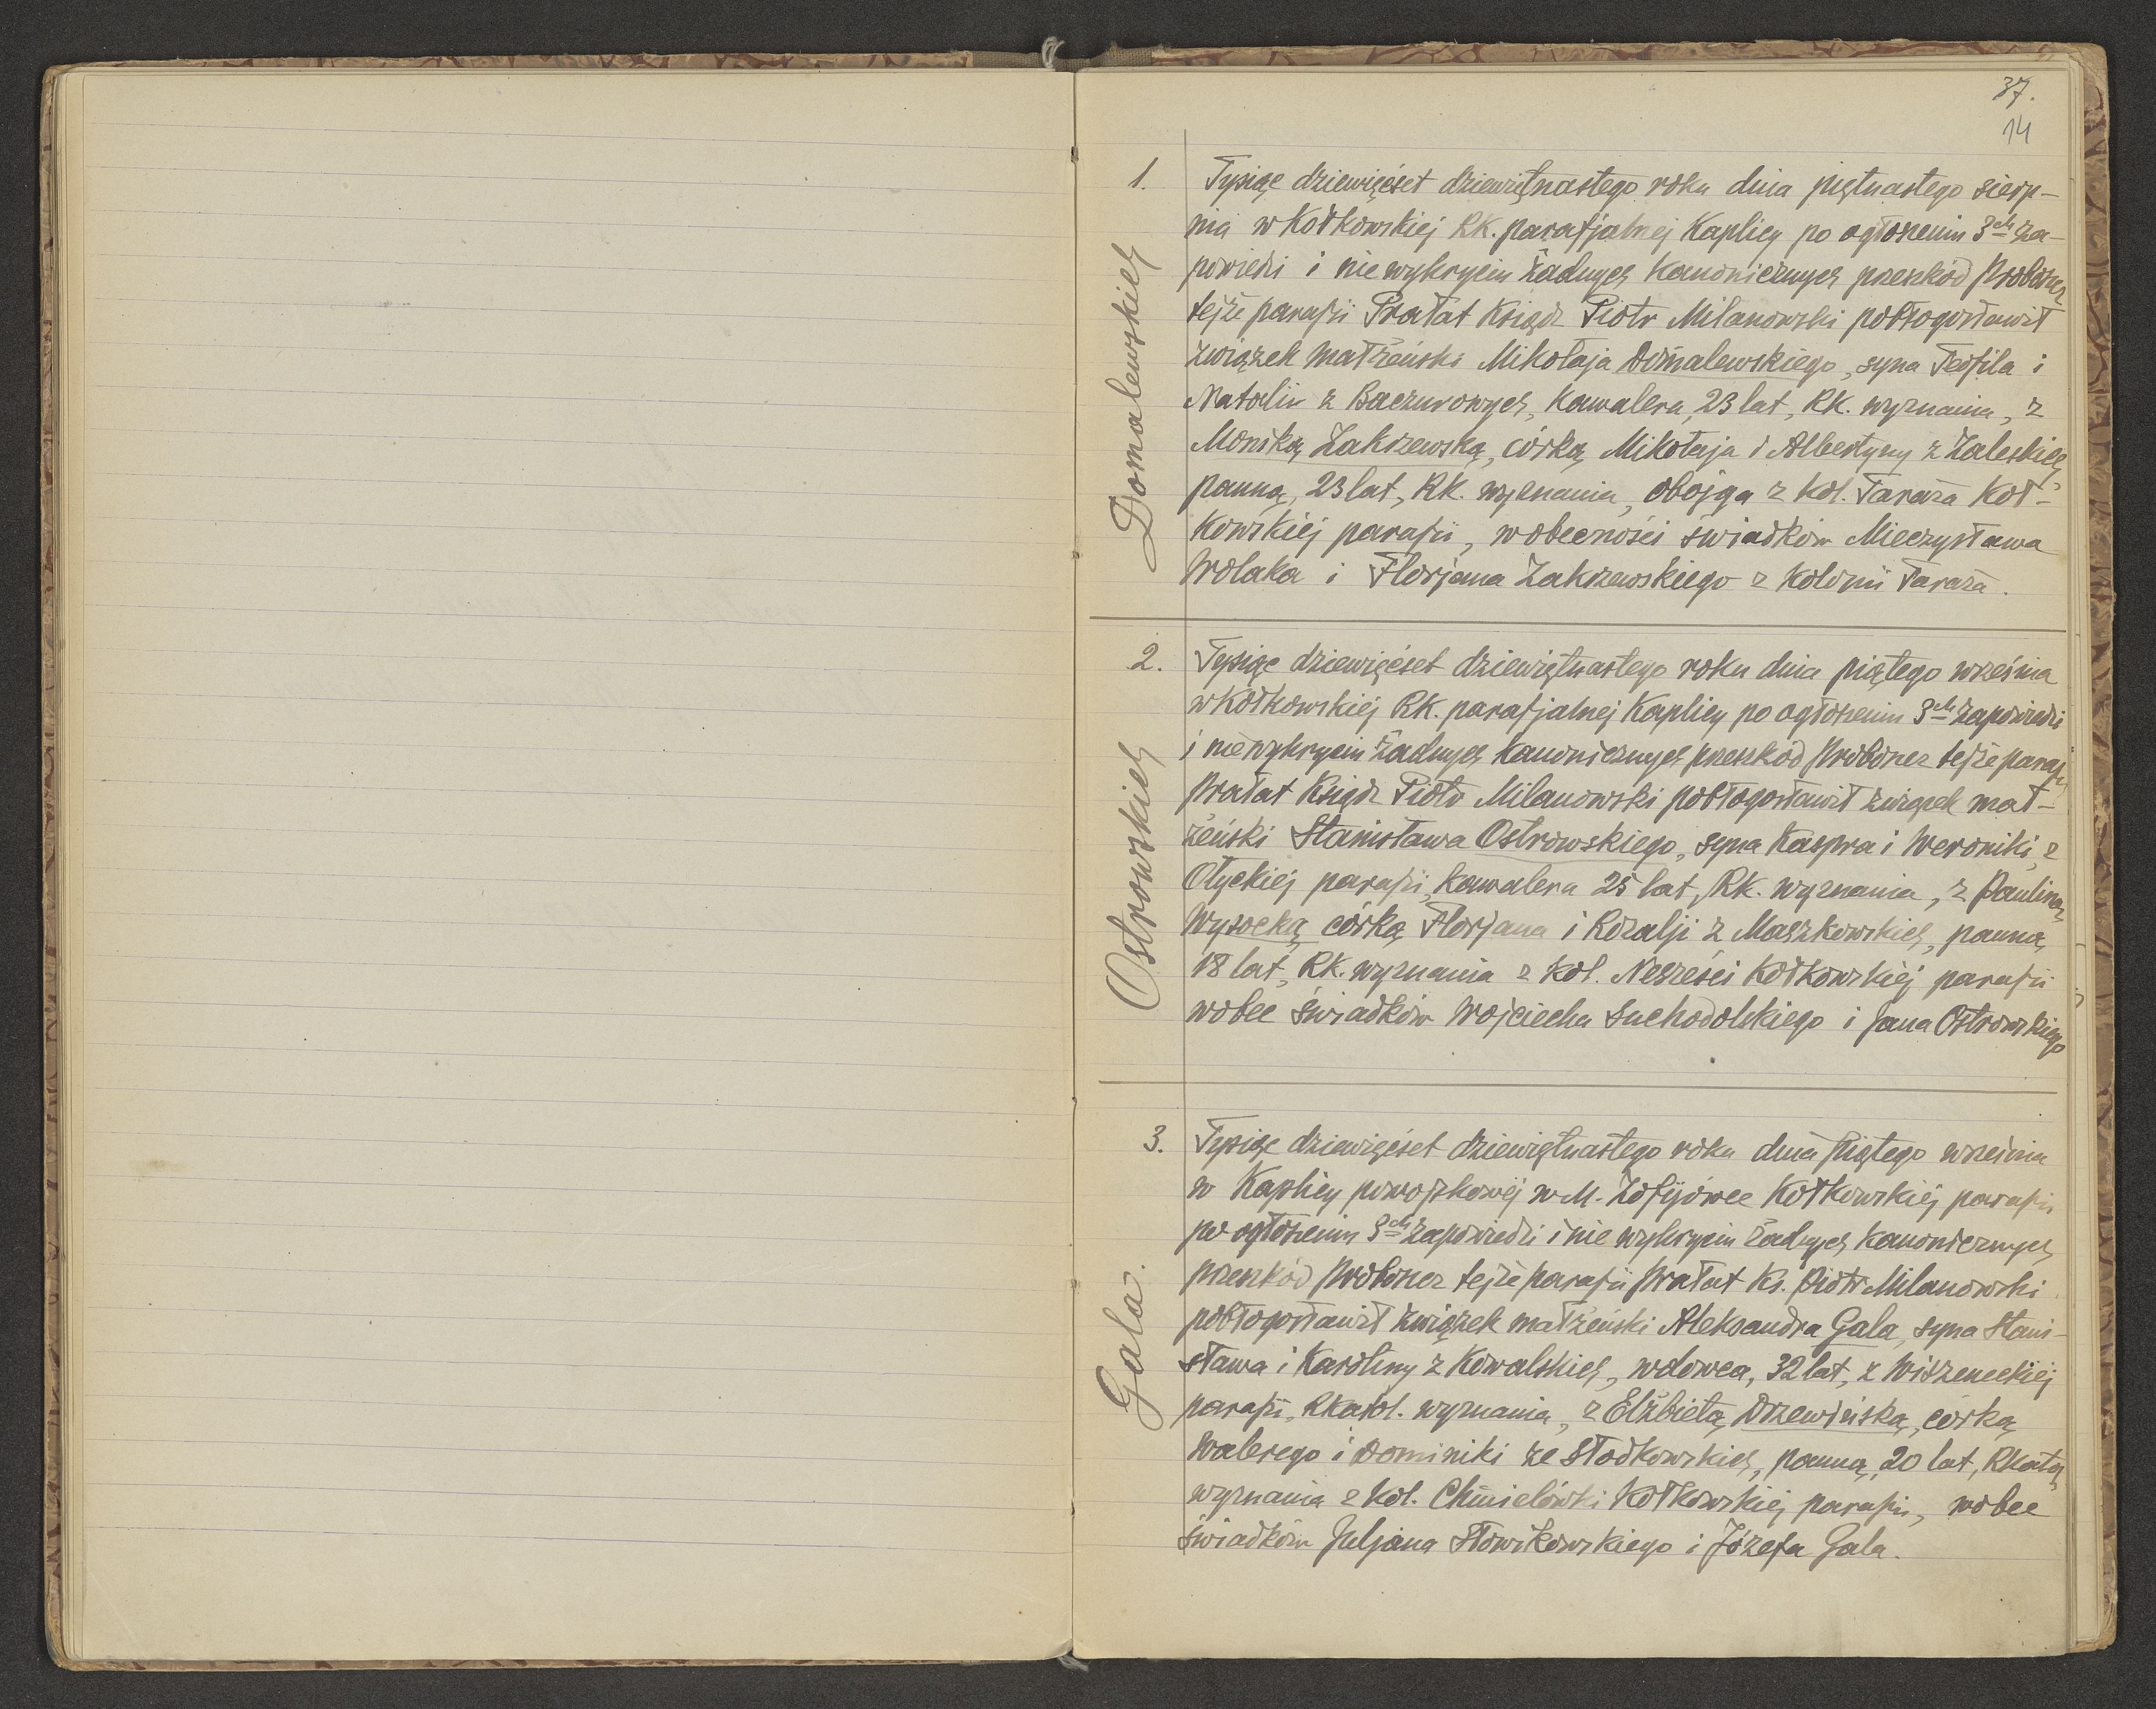 37.
14
1. Tysiąc dziewięćset dziewiętnastego roku dnia piętnastego sierp-
nia w Kołkowskiej RK. parafjalnej Kaplicy po ogłoszeniu 3ch za-
powiedzi i nie wykryciu żadnych Kanonicznych przeszkód Proboszcz
tejże parafii Prałat Ksiądz Piotr Milanowski pobłogosławił
związek małżeński Mikołaja Domalewskiego, syna Teofila i
Natalii z Baczurowych, Kawalera, 23 lat, RK. wyznania, z
Moniką Zakrzewską, córką Mikołaja i Albertyny z Zaleskich,
panną, 23 lat, RK. wyznania, obojga z kol. Taraża Koł-
kowskiej parafii, w obecności świadków Mieczysława
Wolaka i Florjana Zakrzewskiego z kolonii Taraża.
Domalewskich
2. Tysiąc dziewięćset dziewiętnastego roku dnia piątego września
w Kołkowskiej RK. parafjalnej Kaplicy po ogłoszeniu 3ch zapowiedzi
i nie wykryciu żadnych kanonicznych przeszkód proboszcz tejże parafii
Prałat Ksiądz Piotr Milanowski pobłogosławił związek mał-
żeński Stanisława Ostrowskiego, syna Kaspra i Weroniki, z
Ołyckiej parafii, kawalera 25 lat, RK. wyznania, z Pauliną
Wysocką córką Florjana i Rozalji z Maszkowskich, panną
18 lat, RK. wyznania z kol. Nesześci Kołkowskiej parafii
wobec świadków Wojciecha Suchodolskiego i Jana Ostrowskiego
Ostrowskich
3. Tysiąc dziewięćset dziewiętnastego roku dnia piątego września
w Kaplicy powojskowej w M. Zofijówce Kołkowskiej parafii
po ogłoszeniu 3ch zapowiedzi i nie wykryciu żadnych kanonicznych
przeszkód proboszcz tejże parafii prałat Ks. Piotr Milanowski
pobłogosławił związek małżeński Aleksandra Gala, syna Stani-
sława i Karoliny z Kowalskich, wdowca, 32 lat, z Wiszeneckiej
parafii, RKatol. wyznania, z Elżbietą Drzewińską, córką
Walerego i Dominiki ze Słodkowskich, panną, 20 lat, RKatol
wyznania z kol. Chmielówki Kołkowskiej parafii, wobec
świadków Juljana Słowikowskiego i Józefa Gala.
Gala.